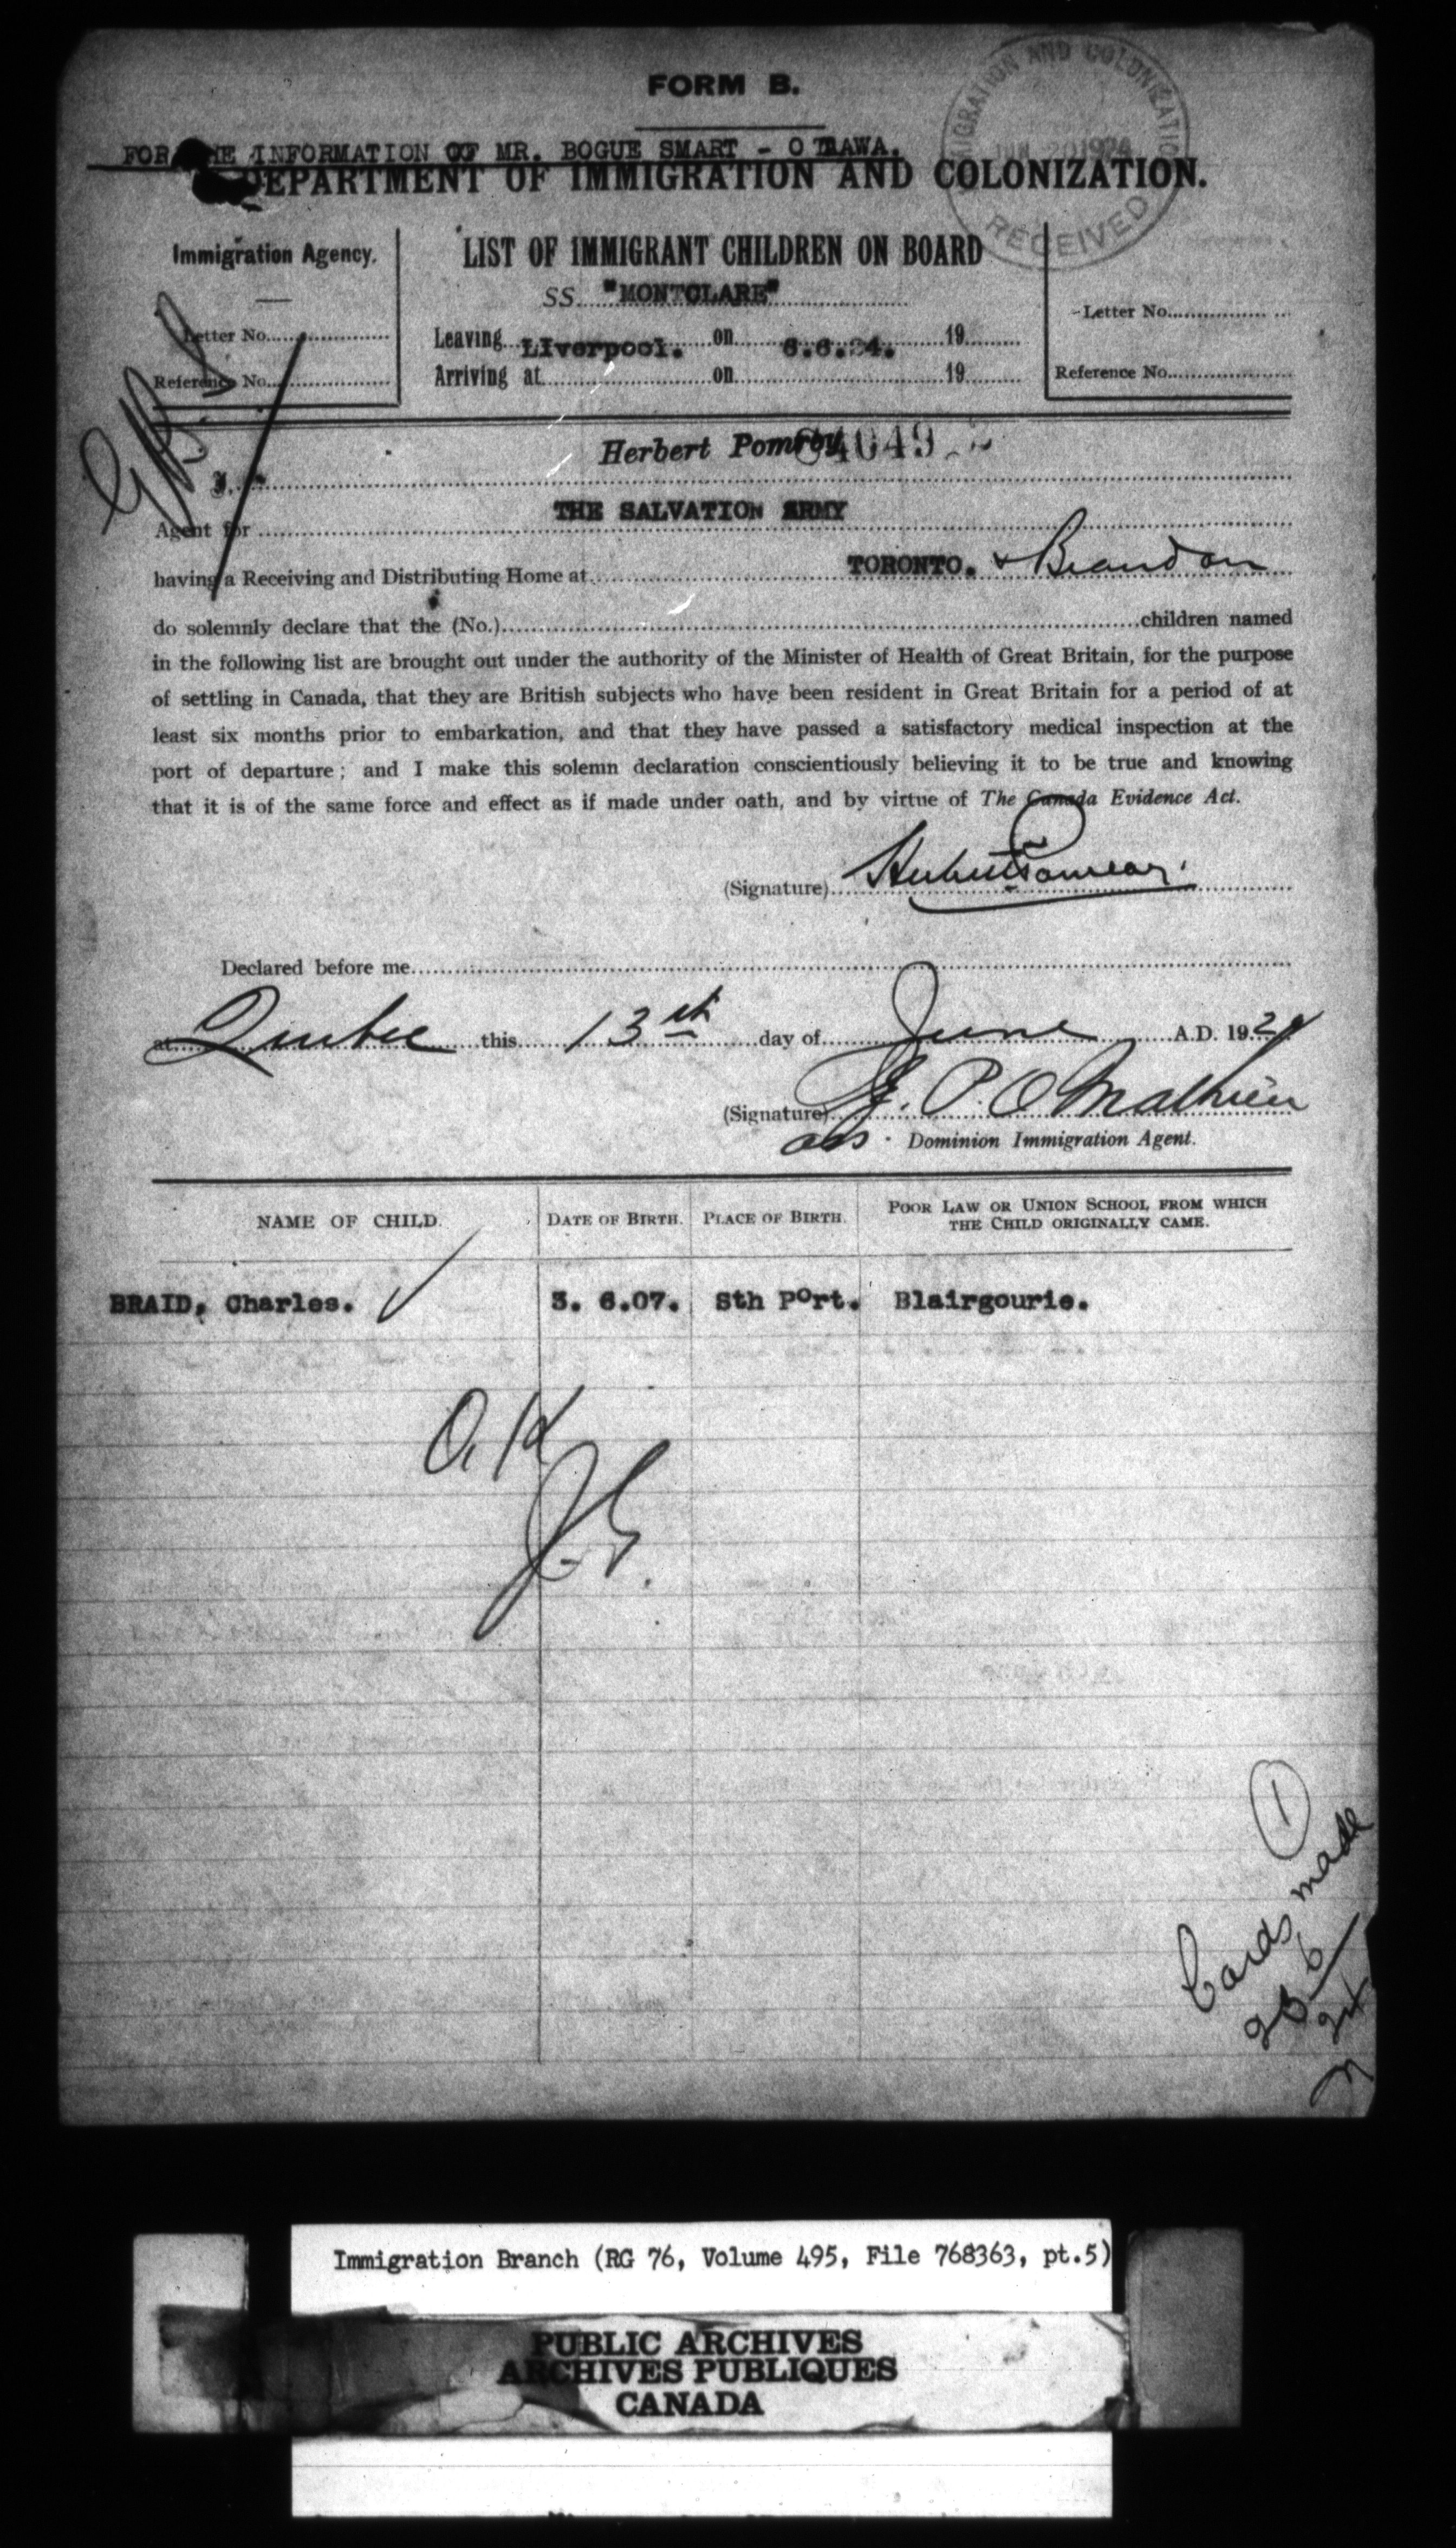 FORM B.
IMMIGRATION AND COLONIZATION
JUN 20 1924
RECEIVED
FOR THE INFORMATION OF MR. BOGUE SMART - OTTAWA.
DEPARTMENT OF IMMIGRATION AND COLONIZATION.
Immigration Agency.
Letter No.
Reference No.
LIST OF IMMIGRANT CHILDREN ON BOARD
SS. "MONTCLARE"
Leaving LIverpool. on 6.6.24. 19
Arriving at on 19
Letter No.
Reference No.
Herbert Pomroy
I,
Agent for THE SALVATION ARMY
having a Receiving and Distributing Home at TORONTO. & Brandon
do solemnly declare that the (No.) children named
in the following list are brought out under the authority of the Minister of Health of Great Britain, for the purpose
of settling in Canada, that they are British subjects who have been resident in Great Britain for a period of at
least six months prior to embarkation, and that they have passed a satisfactory medical inspection at the
port of departure; and I make this solemn declaration conscientiously believing it to be true and knowing
that it is of the same force and effect as if made under oath, and by virtue of The Canada Evidence Act.
(Signature)
Declared before me
at Quebec this 13th day of June A.D. 1924
(Signature) J. P. O Mathieu
Dominion Immigration Agent.
NAME OF CHILD. DATE OF BIRTH. PLACE OF BIRTH. POOR LAW OR UNION SCHOOL FROM WHICH THE CHILD ORIGINALLY CAME.
BRAID, Charles. 3. 6.07. Sth Port. Blairgourie.
O.K
1
Cards made
Immigration Branch (RG 76, Volume 495, File 768363, pt.5)
PUBLIC ARCHIVES
ARCHIVES PUBLIQUES
CANADA